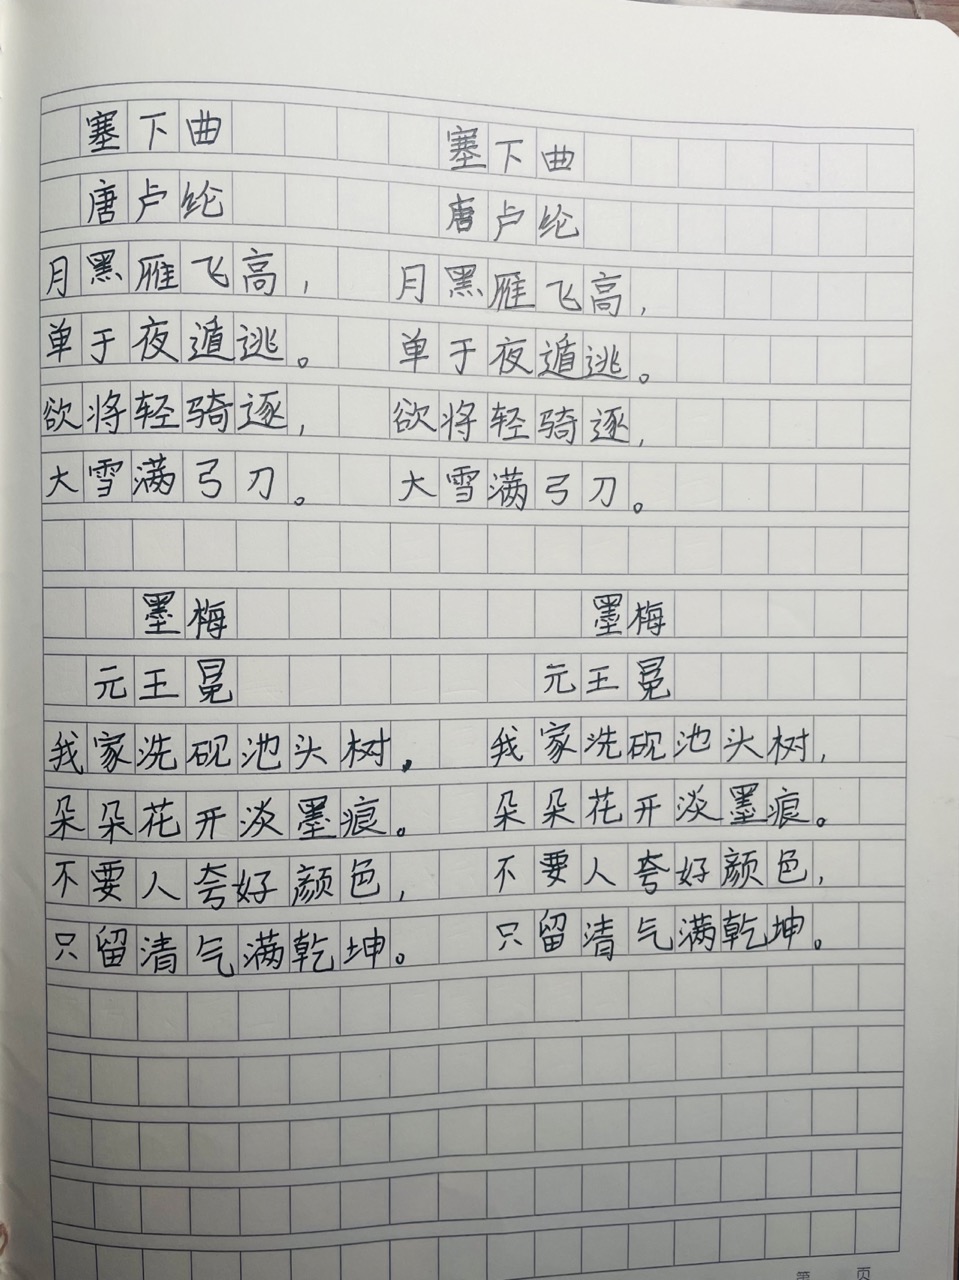 塞下曲 塞下曲
唐卢纶 唐卢纶
月黑雁飞高， 月黑雁飞高，
单于夜遁逃。 单于夜遁逃。
欲将轻骑逐， 欲将轻骑逐，
大雪满弓刀。 大雪满弓刀。
墨梅 墨梅
元王冕 元王冕
我家洗砚池头树， 我家洗砚池头树，
朵朵花开淡墨痕。 朵朵花开淡墨痕。
不要人夸好颜色， 不要人夸好颜色，
只留清气满乾坤。 只留清气满乾坤。
第 页